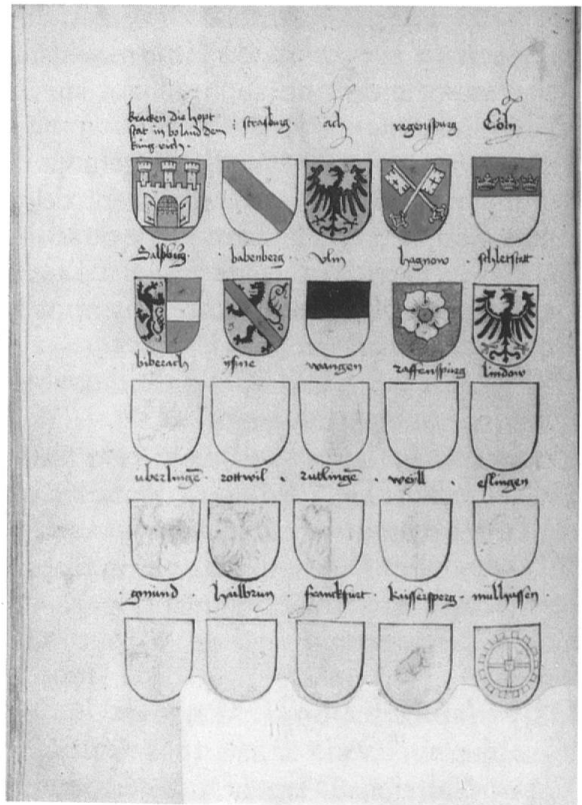 kracken die hopt
stat in boland dem
küng rich. strasburg ach regenspurg Cöln
Salsburg babenberg vlm hagnow schletstatt
biberach ysine wangen raffenspurg lindow
uberlingē rottwil rütlingē weyll eslingen
gmünd hailbrun franckfurt kaissersperg mulhussen